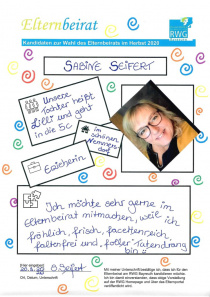 Elternbeirat
RWG
Kandidaten zur Wahl des Elternbeirats im Herbst 2023
SABINE SEIFERT
Unsere
Tochter heißt
Lilli und geht
in die 5c
im
schönen
Nemmers-
dorf
Erzieherin
Ich möchte sehr gerne im
Elternbeirat mitmachen, weil ich
fröhlich, frisch, facettenreich,
faltenfrei und „foller" Tatendrang
bin
S. Seifert
Ort, Datum, Unterschrift
Mit meiner Unterschrift bestätige ich, dass ich für den
Elternbeirat am RWG Bayreuth kandidieren möchte.
Ich bin damit einverstanden, dass mein Vorstellung
auf der RWG Homepage und über das Elternportal
veröffentlicht wird.